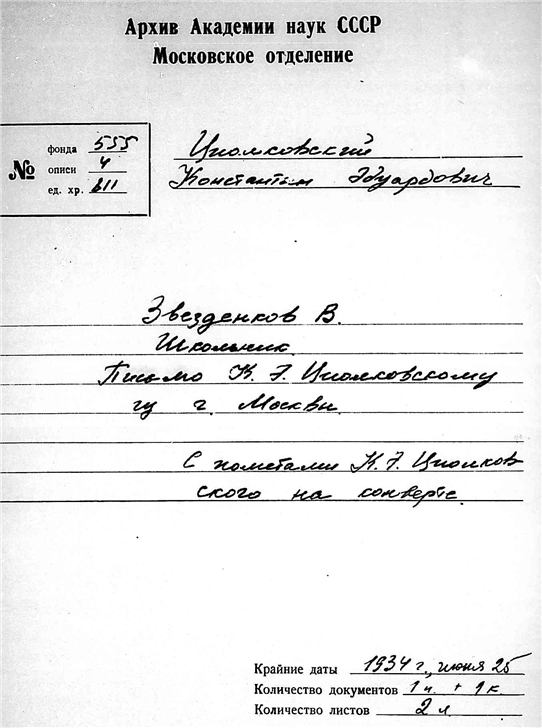 Архив Академии наук СССР
Московское отделение
№
фонда 555
описи 4
ед. хр. 611
Циолковский
Константин Эдуардович
Звезденков В.
Школьник.
Письмо К. Э. Циолковскому
г. Москвы
С пометами К. Э. Циолков
ского на конверте.
Крайние даты 1934 г., июня 25
Количество документов 1 п. + 1 к.
Количество листов 2 л.